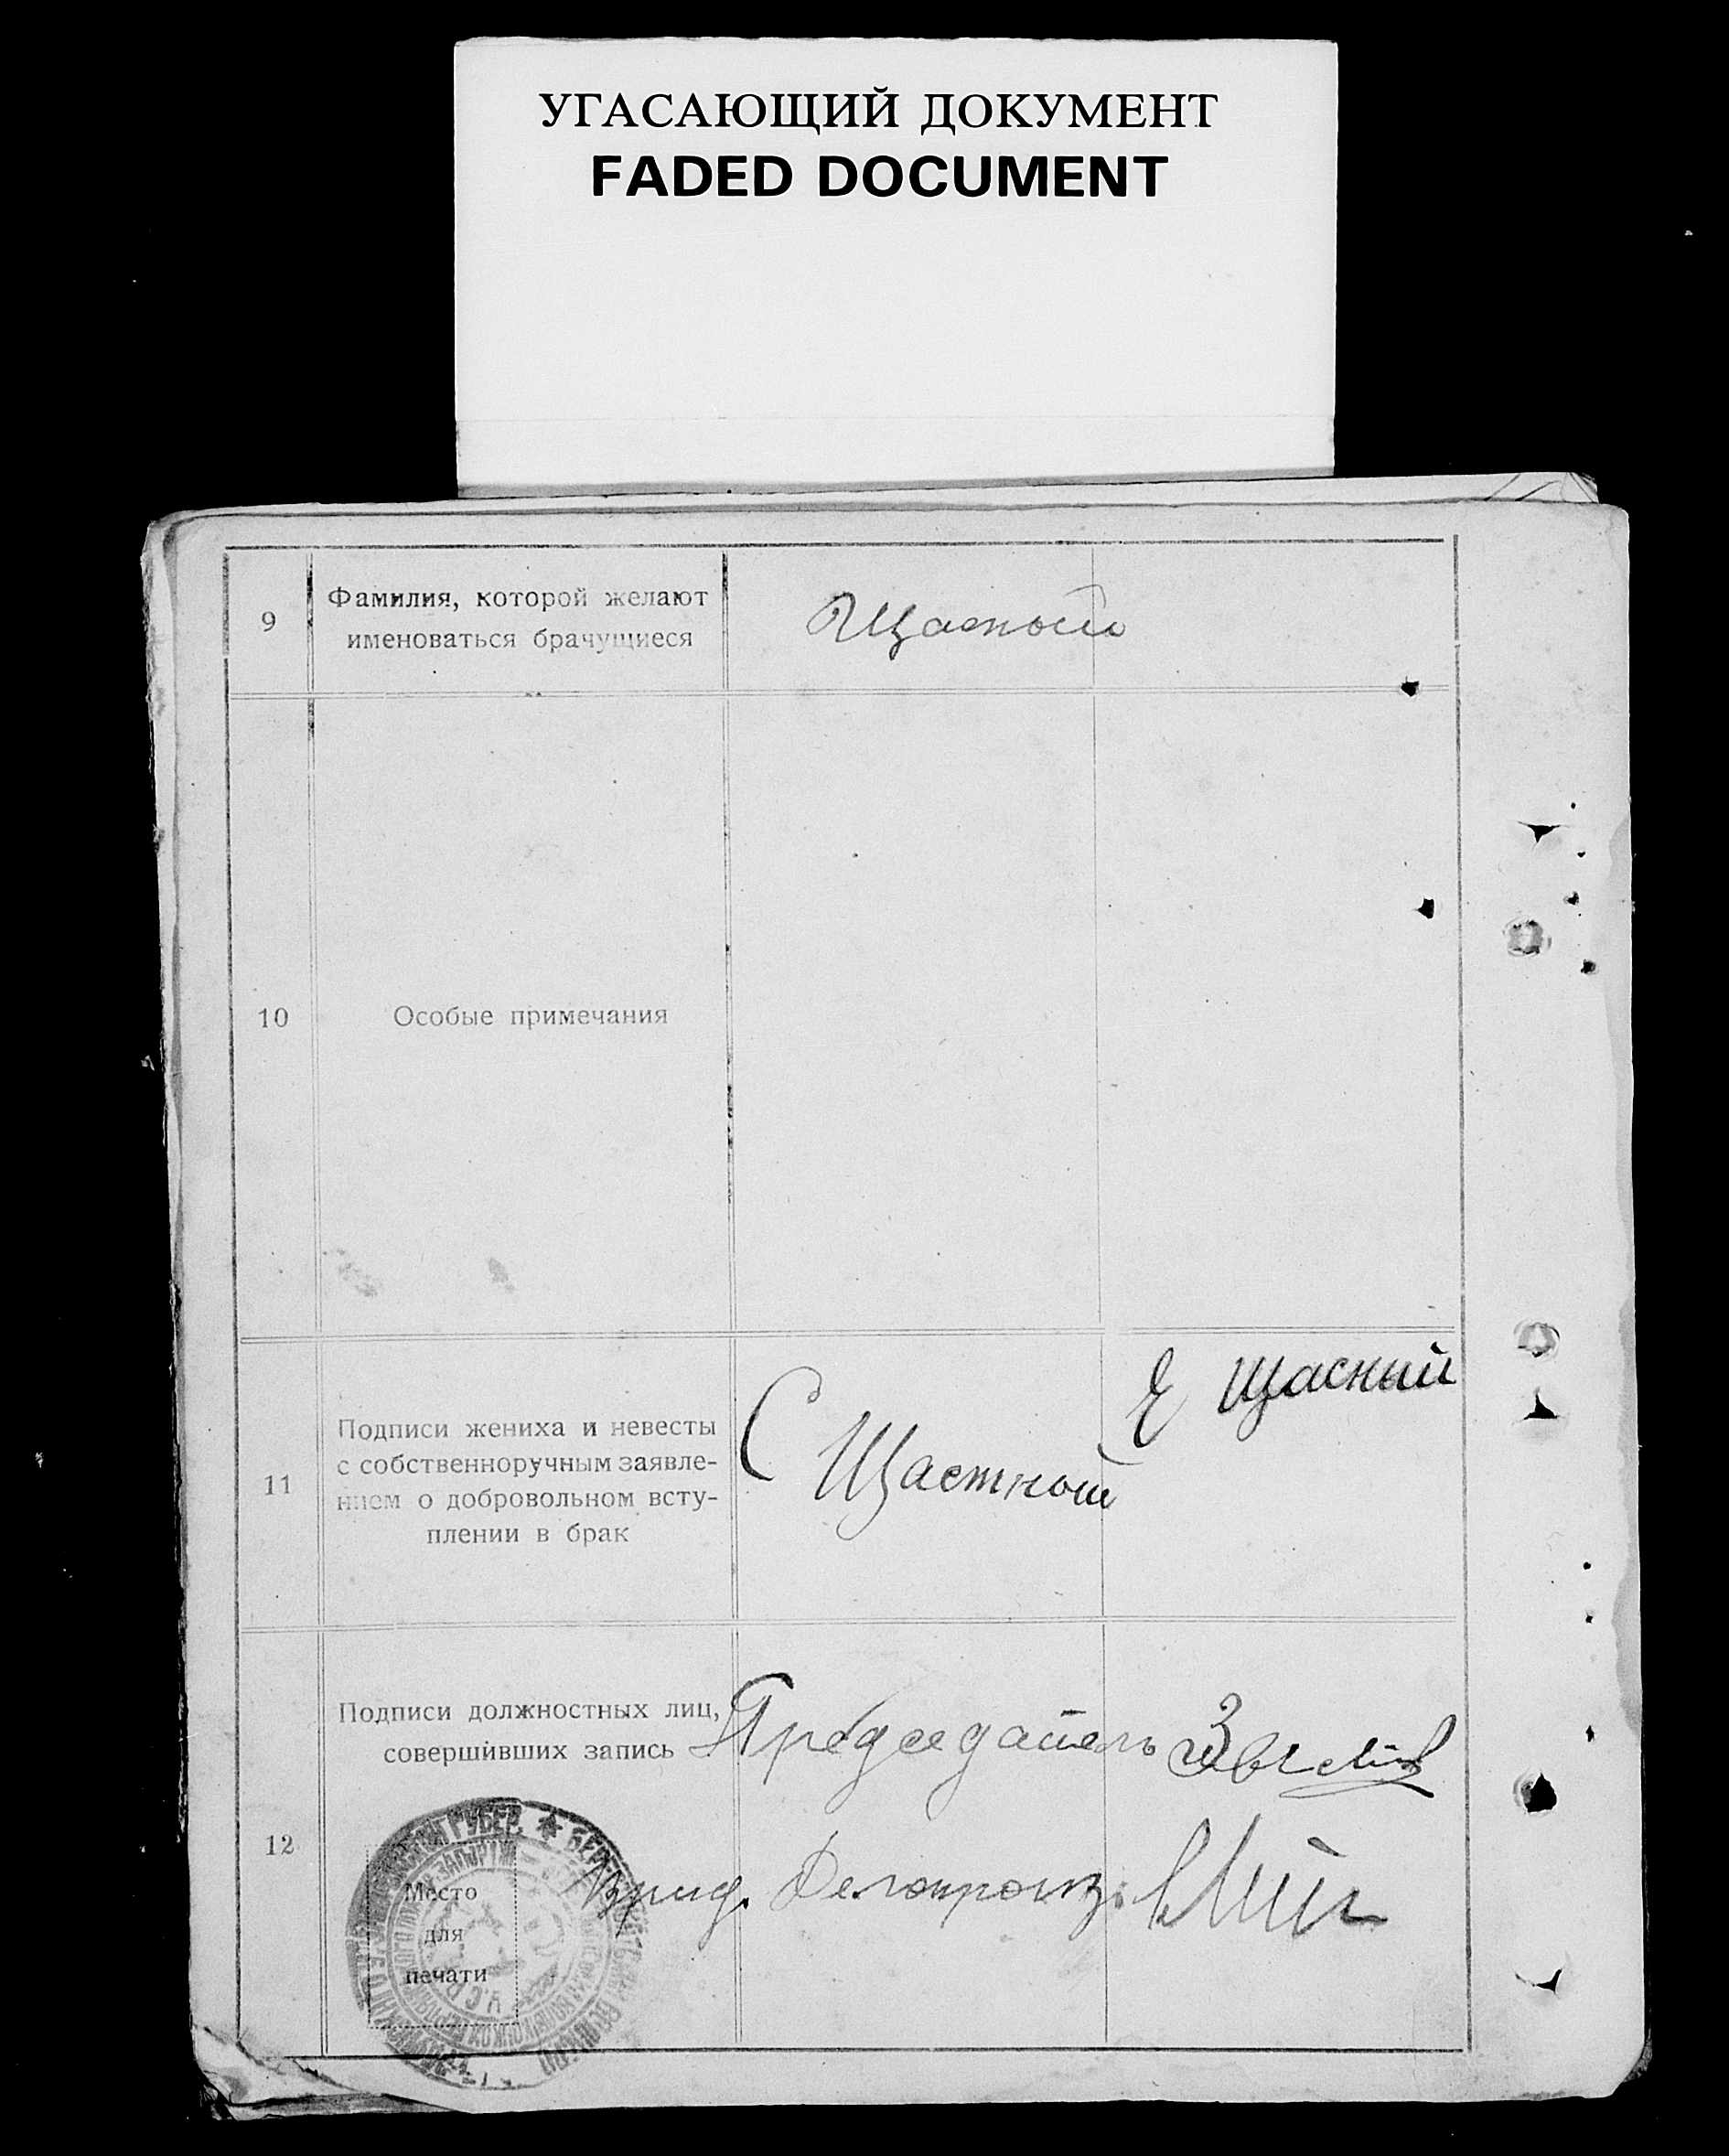 УГАСАЮЩИЙ ДОКУМЕНТ
FADED DOCUMENT
9
Фамилия, которой желают
именоваться брачущиеся
Щасной
10
Особые примечания
11
Подписи жениха и невесты
с собственноручным заявле-
нием о добровольном всту-
плении в брак
С Щастной
Е Щасный
12
Подписи должностных лиц,
совершивших запись
Председатель
Делопроизв.
Место
для
печати
ГУБЕР. ★
У.С.Р.